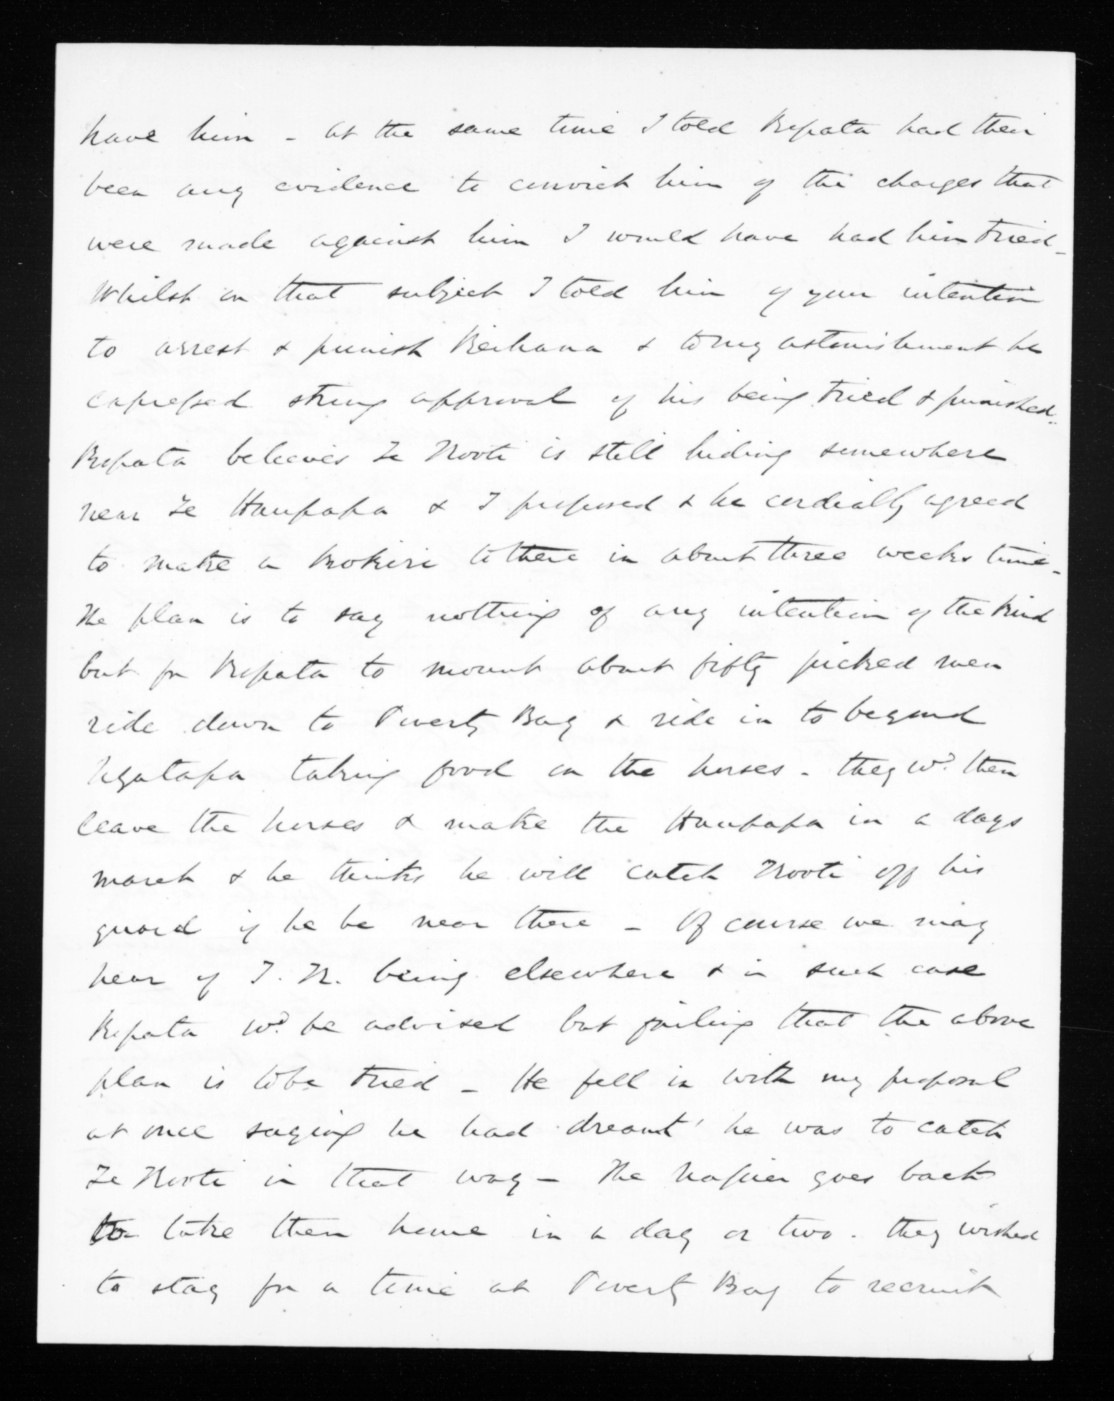 have him - At the same time I told Ropata had their
been any evidence to convict him of the charges that
were made against him I would have had him tried -
Whilst on that subject I told him of your intention
to arrest & punish Reihana & to my astonishment he
expressed strong approval of his being tried & punished.
Ropata believes Te Kooti is still hiding somewhere
near Te Haupapa & I proposed & he cordially agreed
to make a kokiri to there in about three weeks time -
The plan is to say nothing of any intention of the kind
but for Ropata to mount about fifty picked men
ride down to Poverty Bay & ride in to beyond
Ngatapa taking food on the horses - they wd. then
leave the horses & make the Haupapa in a days
march & he thinks he will catch Kooti off his
guard if he be near there - Of course we may
hear of T. K. being elsewhere & in such case
Ropata wd. be advised but failing that the above
plan is to be tried - He fell in with my proposal
at once saying he had dreamt he was to catch
Te Kooti in that way - The Napier goes back
to take them home in a day or two. they wished
to stay for a time at Poverty Bay to recruit